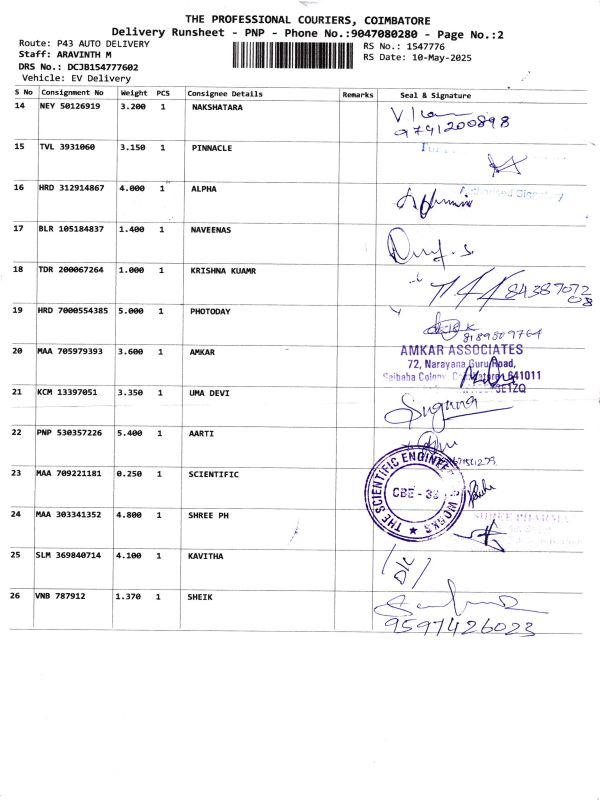 THE PROFESSIONAL COURIERS, COIMBATORE
Delivery Runsheet - PNP - Phone No.:9047080280 - Page No.:2
Route: P43 AUTO DELIVERY
RS No.: 1547776
Staff: ARAVINTH M
RS Date: 10-May-2025
DRS No.: DCJB154777602
Vehicle: EV Delivery
S No Consignment No Weight PCS Consignee Details Remarks Seal & Signature
14 NEY 50126919 3.200 1 NAKSHATARA
9741200898
15 TVL 3931060 3.150 1 PINNACLE
16 HRD 312914867 4.000 1 ALPHA
Authorised Signatory
17 BLR 105184837 1.400 1 NAVEENAS
18 TDR 200067264 1.000 1 KRISHNA KUAMR
8438707208
19 HRD 7000554385 5.000 1 PHOTODAY
8189809764
20 MAA 705979393 3.600 1 AMKAR
AMKAR ASSOCIATES
72, Narayana Guru Road,
Saibaba Colony, 641011
21 KCM 13397051 3.350 1 UMA DEVI
Suguna
22 PNP 530357226 5.400 1 AARTI
23 MAA 709221181 0.250 1 SCIENTIFIC
THE SCIENTIFIC ENGINEERING WORKS
CBE - 38
24 MAA 303341352 4.800 1 SHREE PH
SHREE PHARMA
25 SLM 369840714 4.100 1 KAVITHA
26 VNB 787912 1.370 1 SHEIK
9597426023